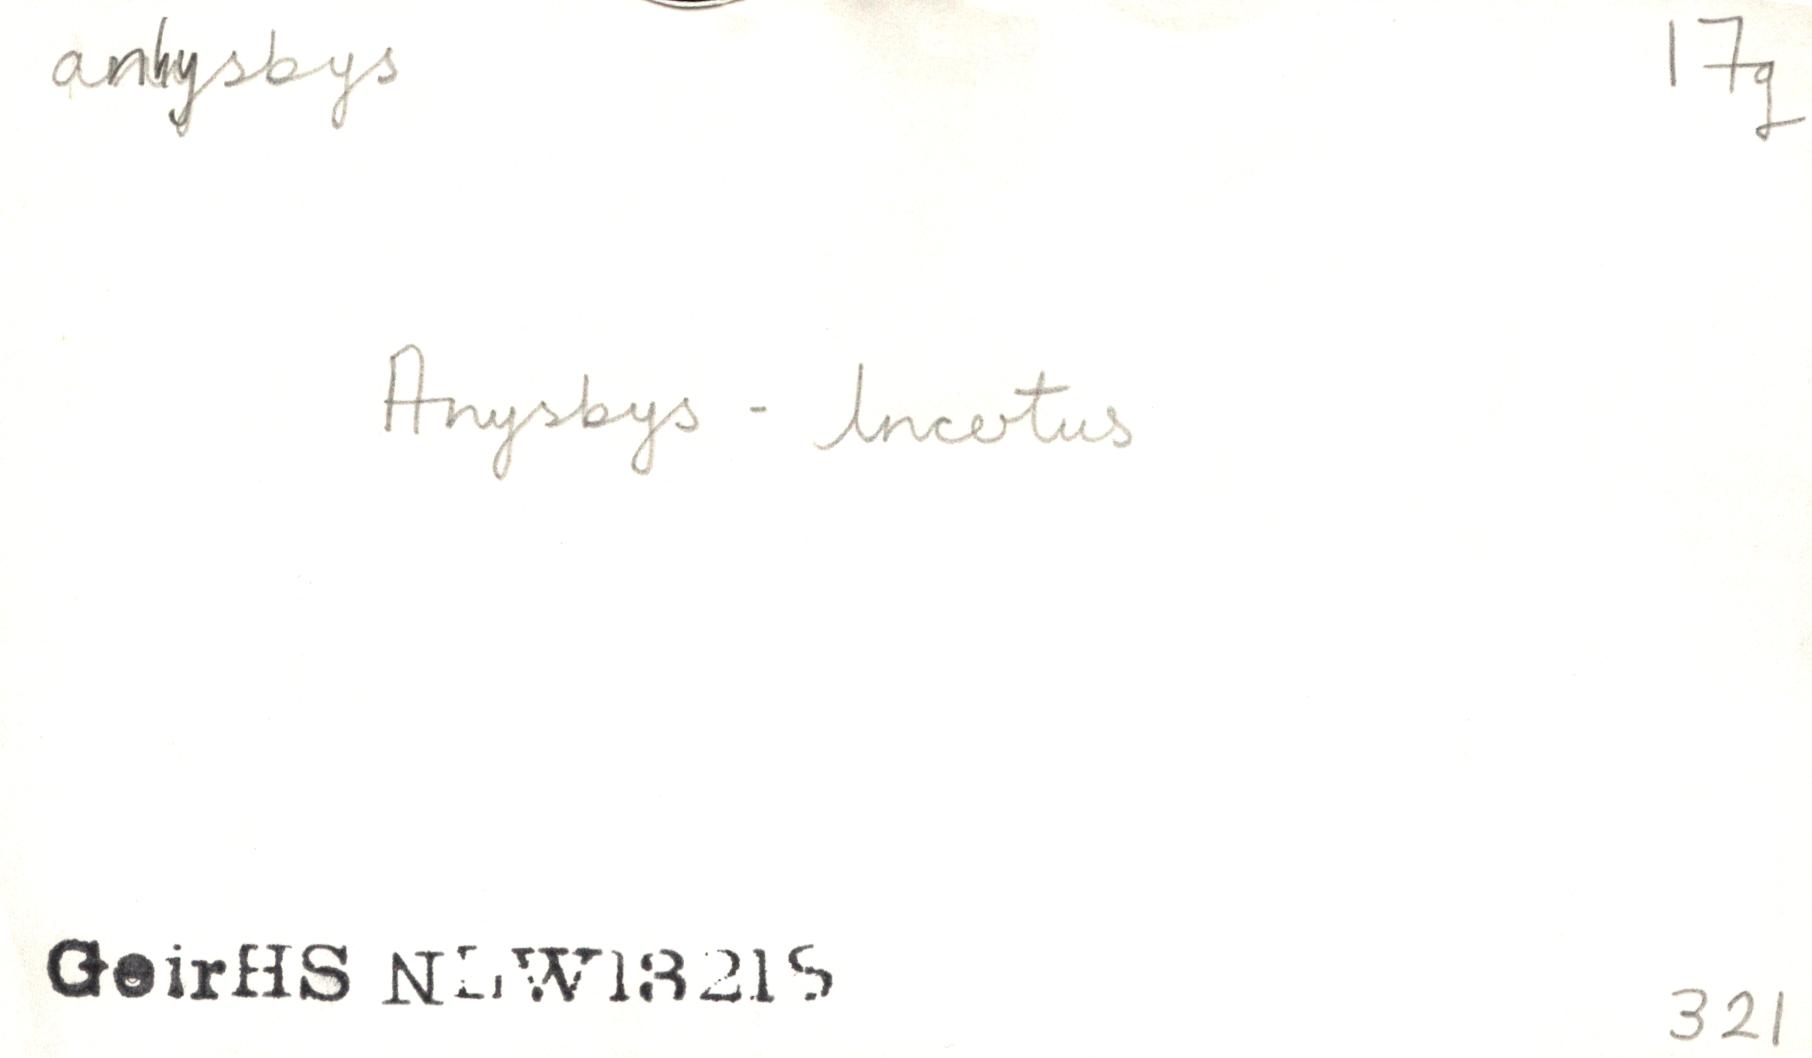 anhysbys 17g
Anysbys - Incertus
GeirHS NLW13215 321